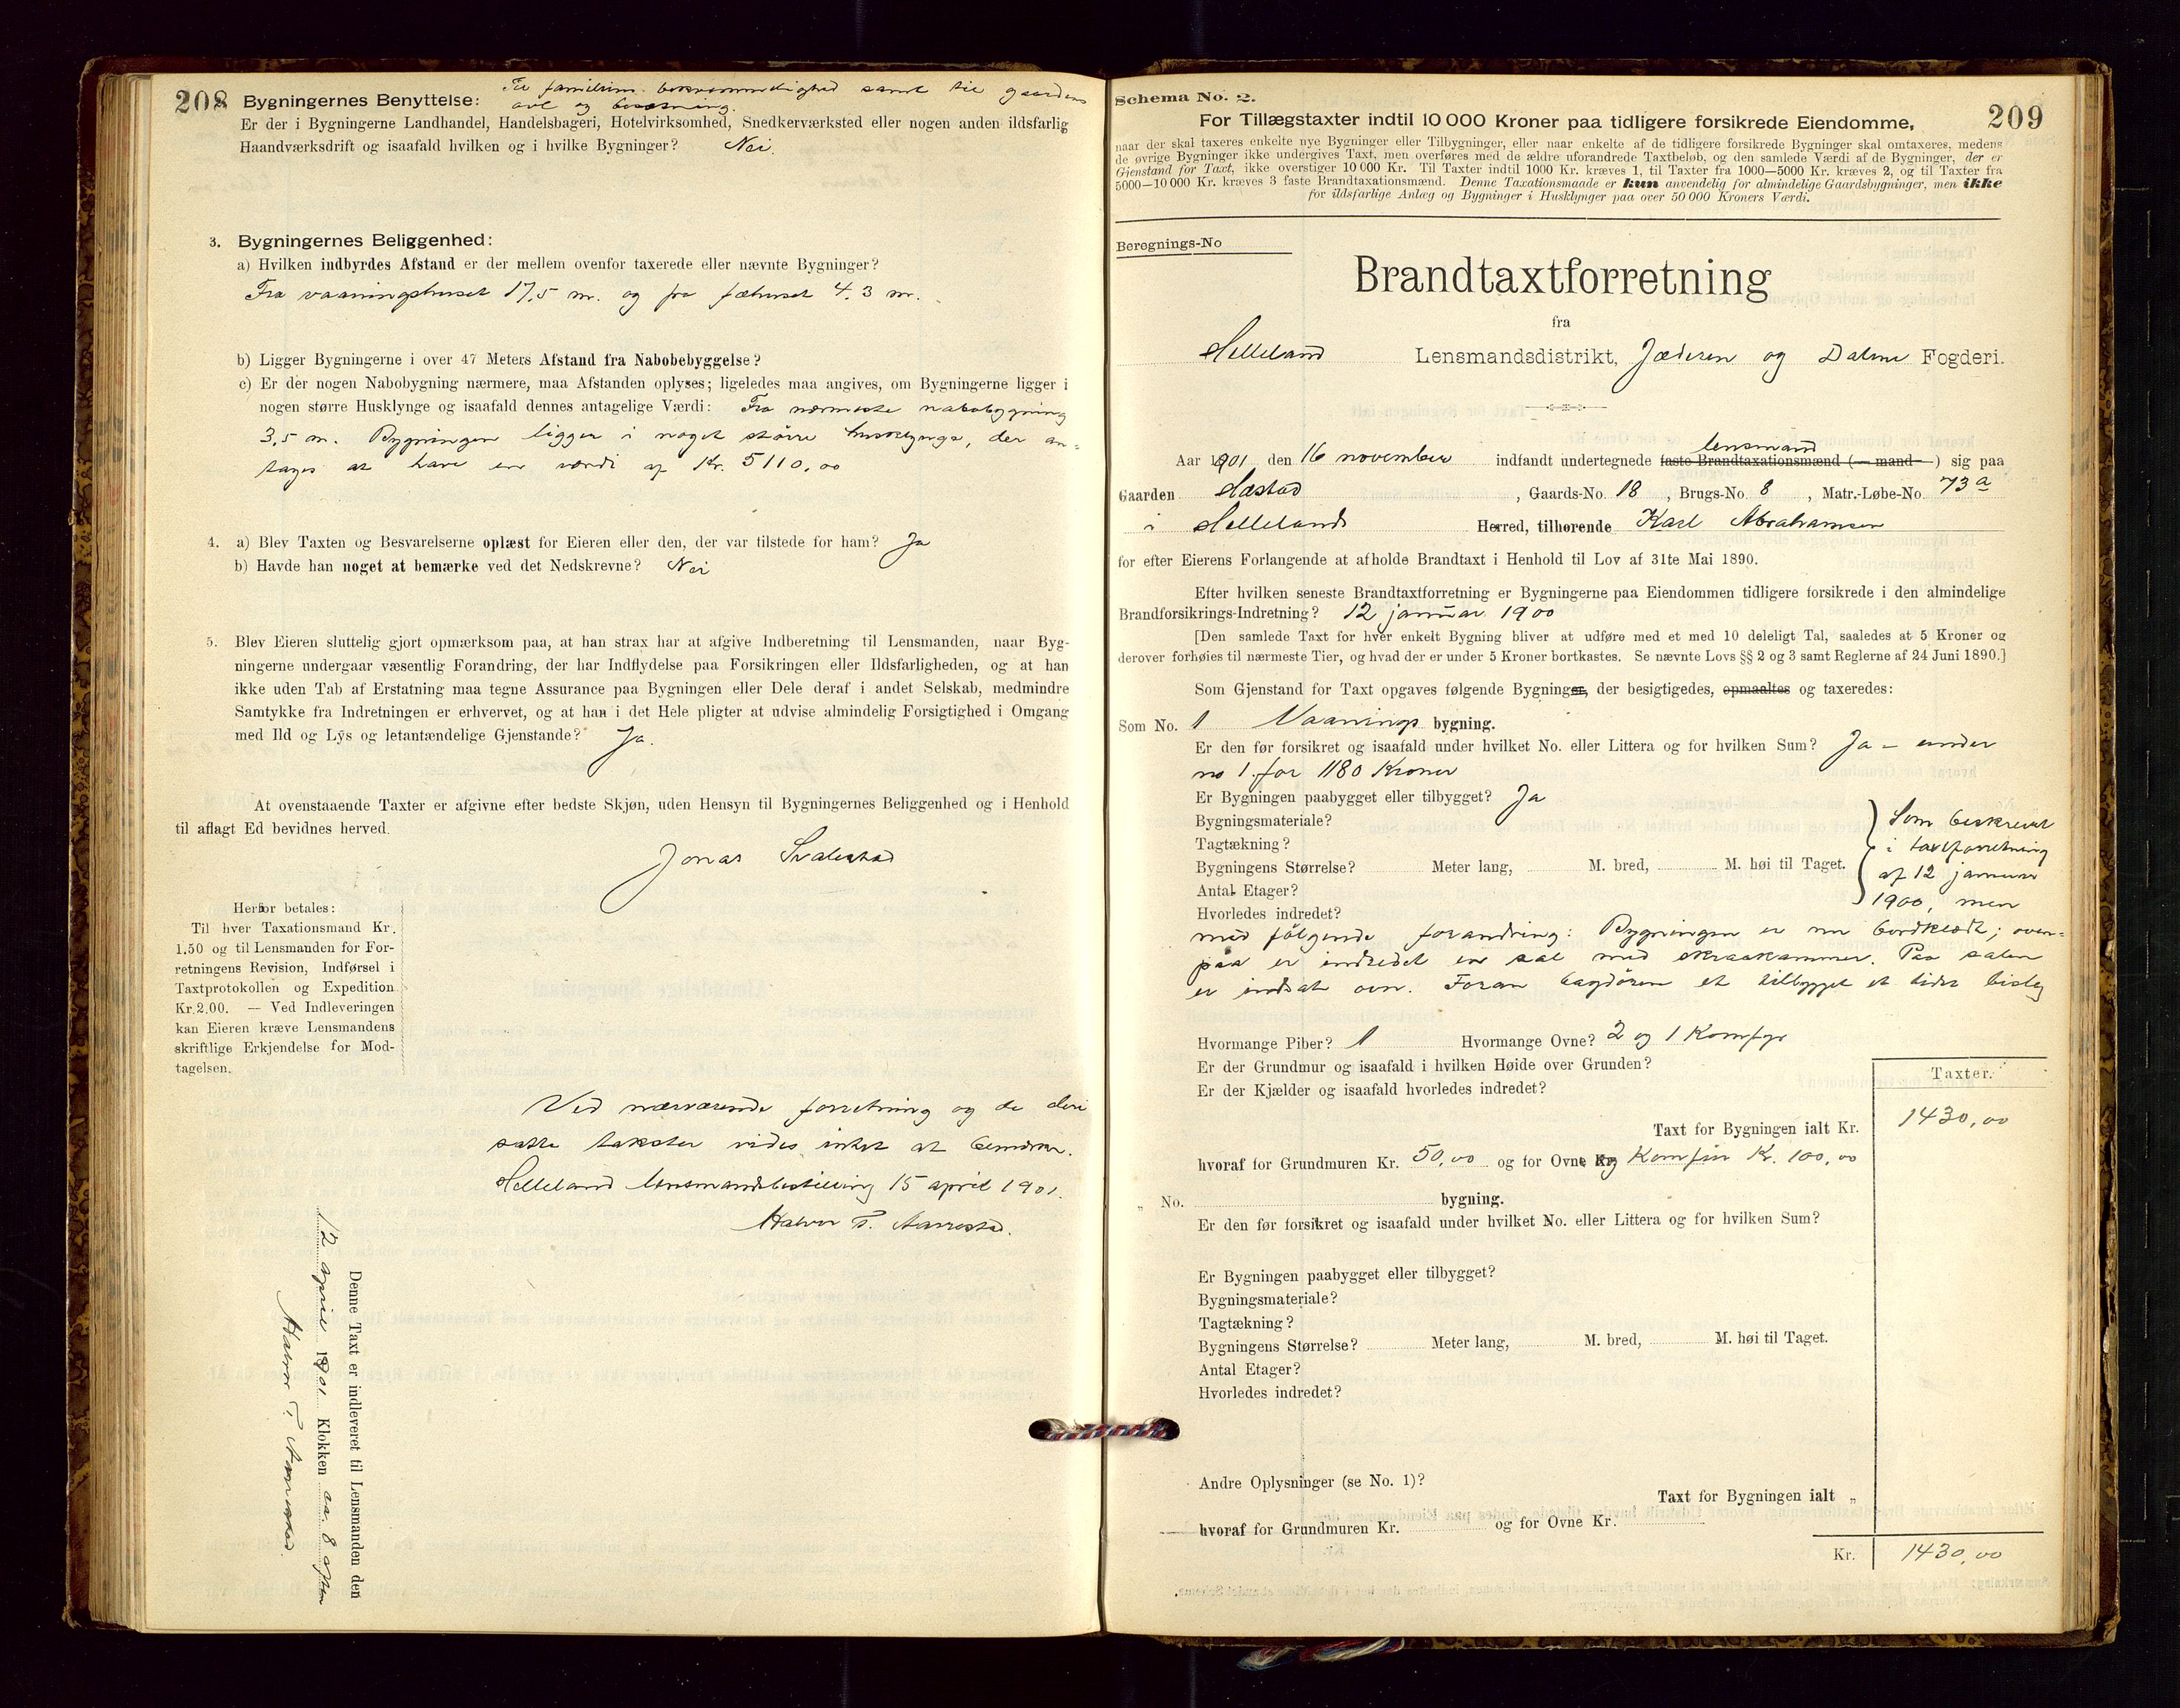 208 Bygningernes Benyttelse: Til familiens bekvemmelighed samt til gaardens
avl og besætning.
Er der i Bygningerne Landhandel, Handelsbageri, Hotelvirksomhed, Snedkerværksted eller nogen anden ildsfarlig
Haandværksdrift og isaafald hvilken og i hvilke Bygninger? Nei.
3. Bygningernes Beliggenhed:
a) Hvilken indbyrdes Afstand er der mellem ovenfor taxerede eller nævnte Bygninger?
Fra vaaningshuset 17,5 m. og fra fæhuset 4,3 m.
b) Ligger Bygningerne i over 47 Meters Afstand fra Nabobebyggelse?
c) Er der nogen Nabobygning nærmere, maa Afstanden oplyses; ligeledes maa angives, om Bygningerne ligger i
nogen større Husklynge og isaafald dennes antagelige Værdi: Fra nærmeste nabobygning
3,5 m. Bygningen ligger i noget större husklynge, der an-
tages at have en værdi af Kr. 5110,00
4. a) Blev Taxten og Besvarelserne oplæst for Eieren eller den, der var tilstede for ham? Ja
b) Havde han noget at bemærke ved det Nedskrevne? Nei
5. Blev Eieren sluttelig gjort opmærksom paa, at han strax har at afgive Indberetning til Lensmanden, naar Byg-
ningerne undergaar væsentlig Forandring, der har Indflydelse paa Forsikringen eller Ildsfarligheden, og at han
ikke uden Tab af Erstatning maa tegne Assurance paa Bygningen eller Dele deraf i andet Selskab, medmindre
Samtykke fra Indretningen er erhvervet, og at han i det Hele pligter at udvise almindelig Forsigtighed i Omgang
med Ild og Lys og letantændelige Gjenstande? Ja.
At ovenstaaende Taxter er afgivne efter bedste Skjøn, uden Hensyn til Bygningernes Beliggenhed og i Henhold
til aflagt Ed bevidnes herved.
Jonas Svalestad
Herfor betales:
Til hver Taxationsmand Kr.
1.50 og til Lensmanden for For-
retningens Revision, Indførsel i
Taxtprotokollen og Expedition
Kr. 2.00. — Ved Indleveringen
kan Eieren kræve Lensmandens
skriftlige Erkjendelse for Mod-
tagelsen.
Ved nærværende forretning og de deri
satte takster vides intet at bemærke.
Helleland lensmandsbestilling 15 april 1901.
Halvor T. Aarrestad.
Denne Taxt er indleveret til Lensmanden den
12 april 1901 Klokken ca. 8 aften
Halvor T. Aarrestad.
Schema No. 2.
For Tillægstaxter indtil 10 000 Kroner paa tidligere forsikrede Eiendomme, 209
naar der skal taxeres enkelte nye Bygninger eller Tilbygninger, eller naar enkelte af de tidligere forsikrede Bygninger skal omtaxeres, medens
de øvrige Bygninger ikke undergives Taxt, men overføres med de ældre uforandrede Taxtbeløb, og den samlede Værdi af de Bygninger, der er
Gjenstand for Taxt, ikke overstiger 10 000 Kr. Til Taxter indtil 1000 Kr. kræves 1, til Taxter fra 1000—5000 Kr. kræves 2, og til Taxter fra
5000—10 000 Kr. kræves 3 faste Brandtaxationsmænd. Denne Taxationsmaade er kun anvendelig for almindelige Gaardsbygninger, men ikke
for ildsfarlige Anlæg og Bygninger i Husklynger paa over 50 000 Kroners Værdi.
Beregnings-No
Brandtaxtforretning
fra
Helleland Lensmandsdistrikt, Jæderen og Dalene Fogderi.
Aar 1901 den 16 november indfandt undertegnede lensmand faste Brandtaxationsmænd (—mand—) sig paa
Gaarden Sæstad, Gaards-No. 18, Brugs-No. 8, Matr.-Løbe-No. 73 a
i Hellelands Herred, tilhørende Karl Abrahamsen
for efter Eierens Forlangende at afholde Brandtaxt i Henhold til Lov af 31te Mai 1890.
Efter hvilken seneste Brandtaxtforretning er Bygningerne paa Eiendommen tidligere forsikrede i den almindelige
Brandforsikrings-Indretning? 12 januar 1900
[Den samlede Taxt for hver enkelt Bygning bliver at udføre med et med 10 deleligt Tal, saaledes at 5 Kroner og
derover forhøies til nærmeste Tier, og hvad der er under 5 Kroner bortkastes. Se nævnte Lovs §§ 2 og 3 samt Reglerne af 24 Juni 1890.]
Som Gjenstand for Taxt opgaves følgende Bygninger, der besigtigedes, opmaaltes og taxeredes:
Som No. 1 Vaanings bygning.
Er den før forsikret og isaafald under hvilket No. eller Littera og for hvilken Sum? Ja – under
no 1 for 1180 Kroner
Er Bygningen paabygget eller tilbygget? Ja
Bygningsmateriale? Som beskrevet
Tagtækning? i taxtforretning
Bygningens Størrelse? Meter lang, M. bred, M. høi til Taget. af 12 januar
Antal Etager? 1900, men
Hvorledes indredet?
med følgende forandring: Bygningen er nu bordklædt; oven-
paa er indredet en sal med skraakammer. Paa salen
er indsat ovn. Foran bagdören et tilbygget et lidet bislag
Hvormange Piber? 1 Hvormange Ovne? 2 og 1 Komfyr
Er der Grundmur og isaafald i hvilken Høide over Grunden?
Er der Kjælder og isaafald hvorledes indredet?
Taxter.
Taxt for Bygningen ialt Kr. 1430,00
hvoraf for Grundmuren Kr. 50,00 og for Ovne og Komfür Kr. 100,00
„ No. bygning.
Er den før forsikret og isaafald under hvilket No. eller Littera og for hvilken Sum?
Er Bygningen paabygget eller tilbygget?
Bygningsmateriale?
Tagtækning?
Bygningens Størrelse? Meter lang, M. bred, M. høi til Taget.
Antal Etager?
Hvorledes indredet?
Andre Oplysninger (se No. 1)?
Taxt for Bygningen ialt „
hvoraf for Grundmuren Kr. og for Ovne Kr.
Kr. 1430,00